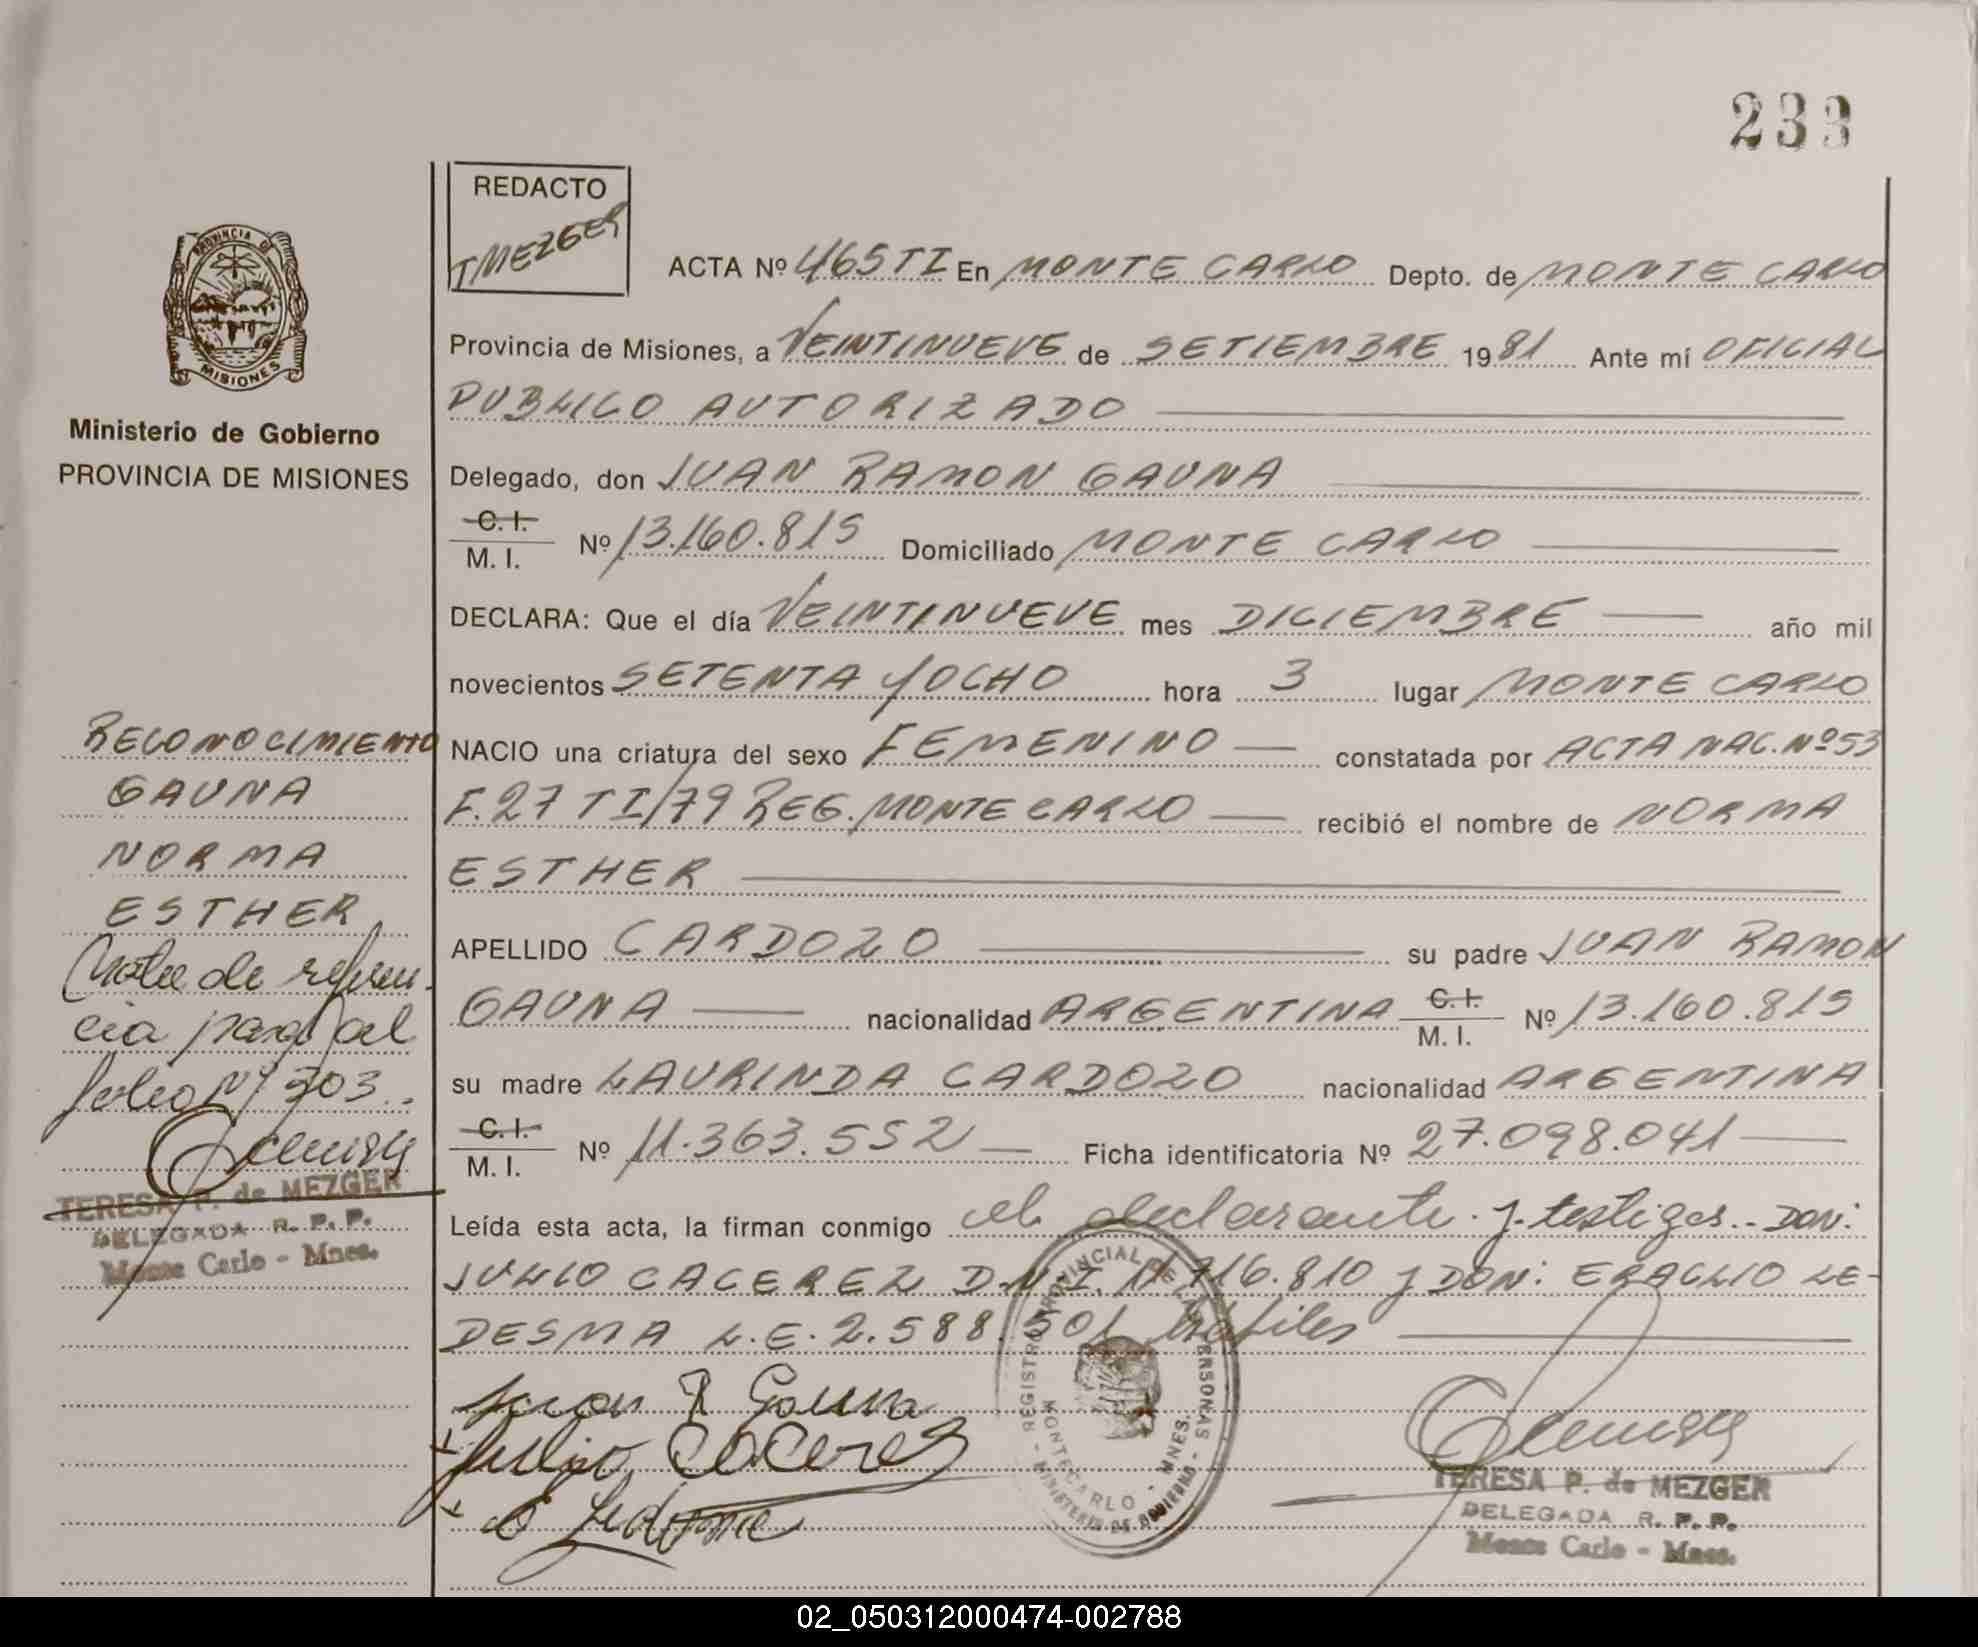 233
REDACTO
TMEZGER
ACTA Nº 465 TI En MONTE CARLO Depto. de MONTE CARLO
Provincia de Misiones, a VEINTINUEVE de SETIEMBRE 1981 Ante mí OFICIAL
PUBLICO AUTORIZADO
Delegado, don JUAN RAMON GAUNA
C. I.
M. I. Nº 13.160.815 Domiciliado MONTE CARLO
DECLARA: Que el día VEINTINUEVE mes DICIEMBRE año mil
novecientos SETENTA Y OCHO hora 3 lugar MONTE CARLO
NACIO una criatura del sexo FEMENINO constatada por ACTA NAC. Nº 53
F. 27 TI/79 REG. MONTE CARLO recibió el nombre de NORMA
ESTHER
APELLIDO CARDOZO su padre JUAN RAMON
GAUNA nacionalidad ARGENTINA C. I. M. I. Nº 13.160.815
su madre LAURINDA CARDOZO nacionalidad ARGENTINA
C. I.
M. I. Nº 11.363.552 Ficha identificatoria Nº 27.098.041
Leída esta acta, la firman conmigo el declarante y testigos.. DON:
JULIO CACEREZ D.N.I. 11.716.810 y DON: ERACLIO LE-
DESMA L.E. 2.588.501 hábiles
Juan R Gauna
Julio Caceres
Ledesma
REGISTRO PROVINCIAL DE LAS PERSONAS - MINISTERIO DE GOBIERNO -
MONTECARLO - MNES.
TERESA P. de MEZGER
DELEGADA R. P. P.
Monte Carlo - Mnes.
PROVINCIA D
MISIONES
Ministerio de Gobierno
PROVINCIA DE MISIONES
RECONOCIMIENTO
GAUNA
NORMA
ESTHER
Nota de referen-
cia pasa al
folio Nº 303..
TERESA P. de MEZGER
DELEGADA R. P. P.
Monte Carlo - Mnes.
02_050312000474-002788